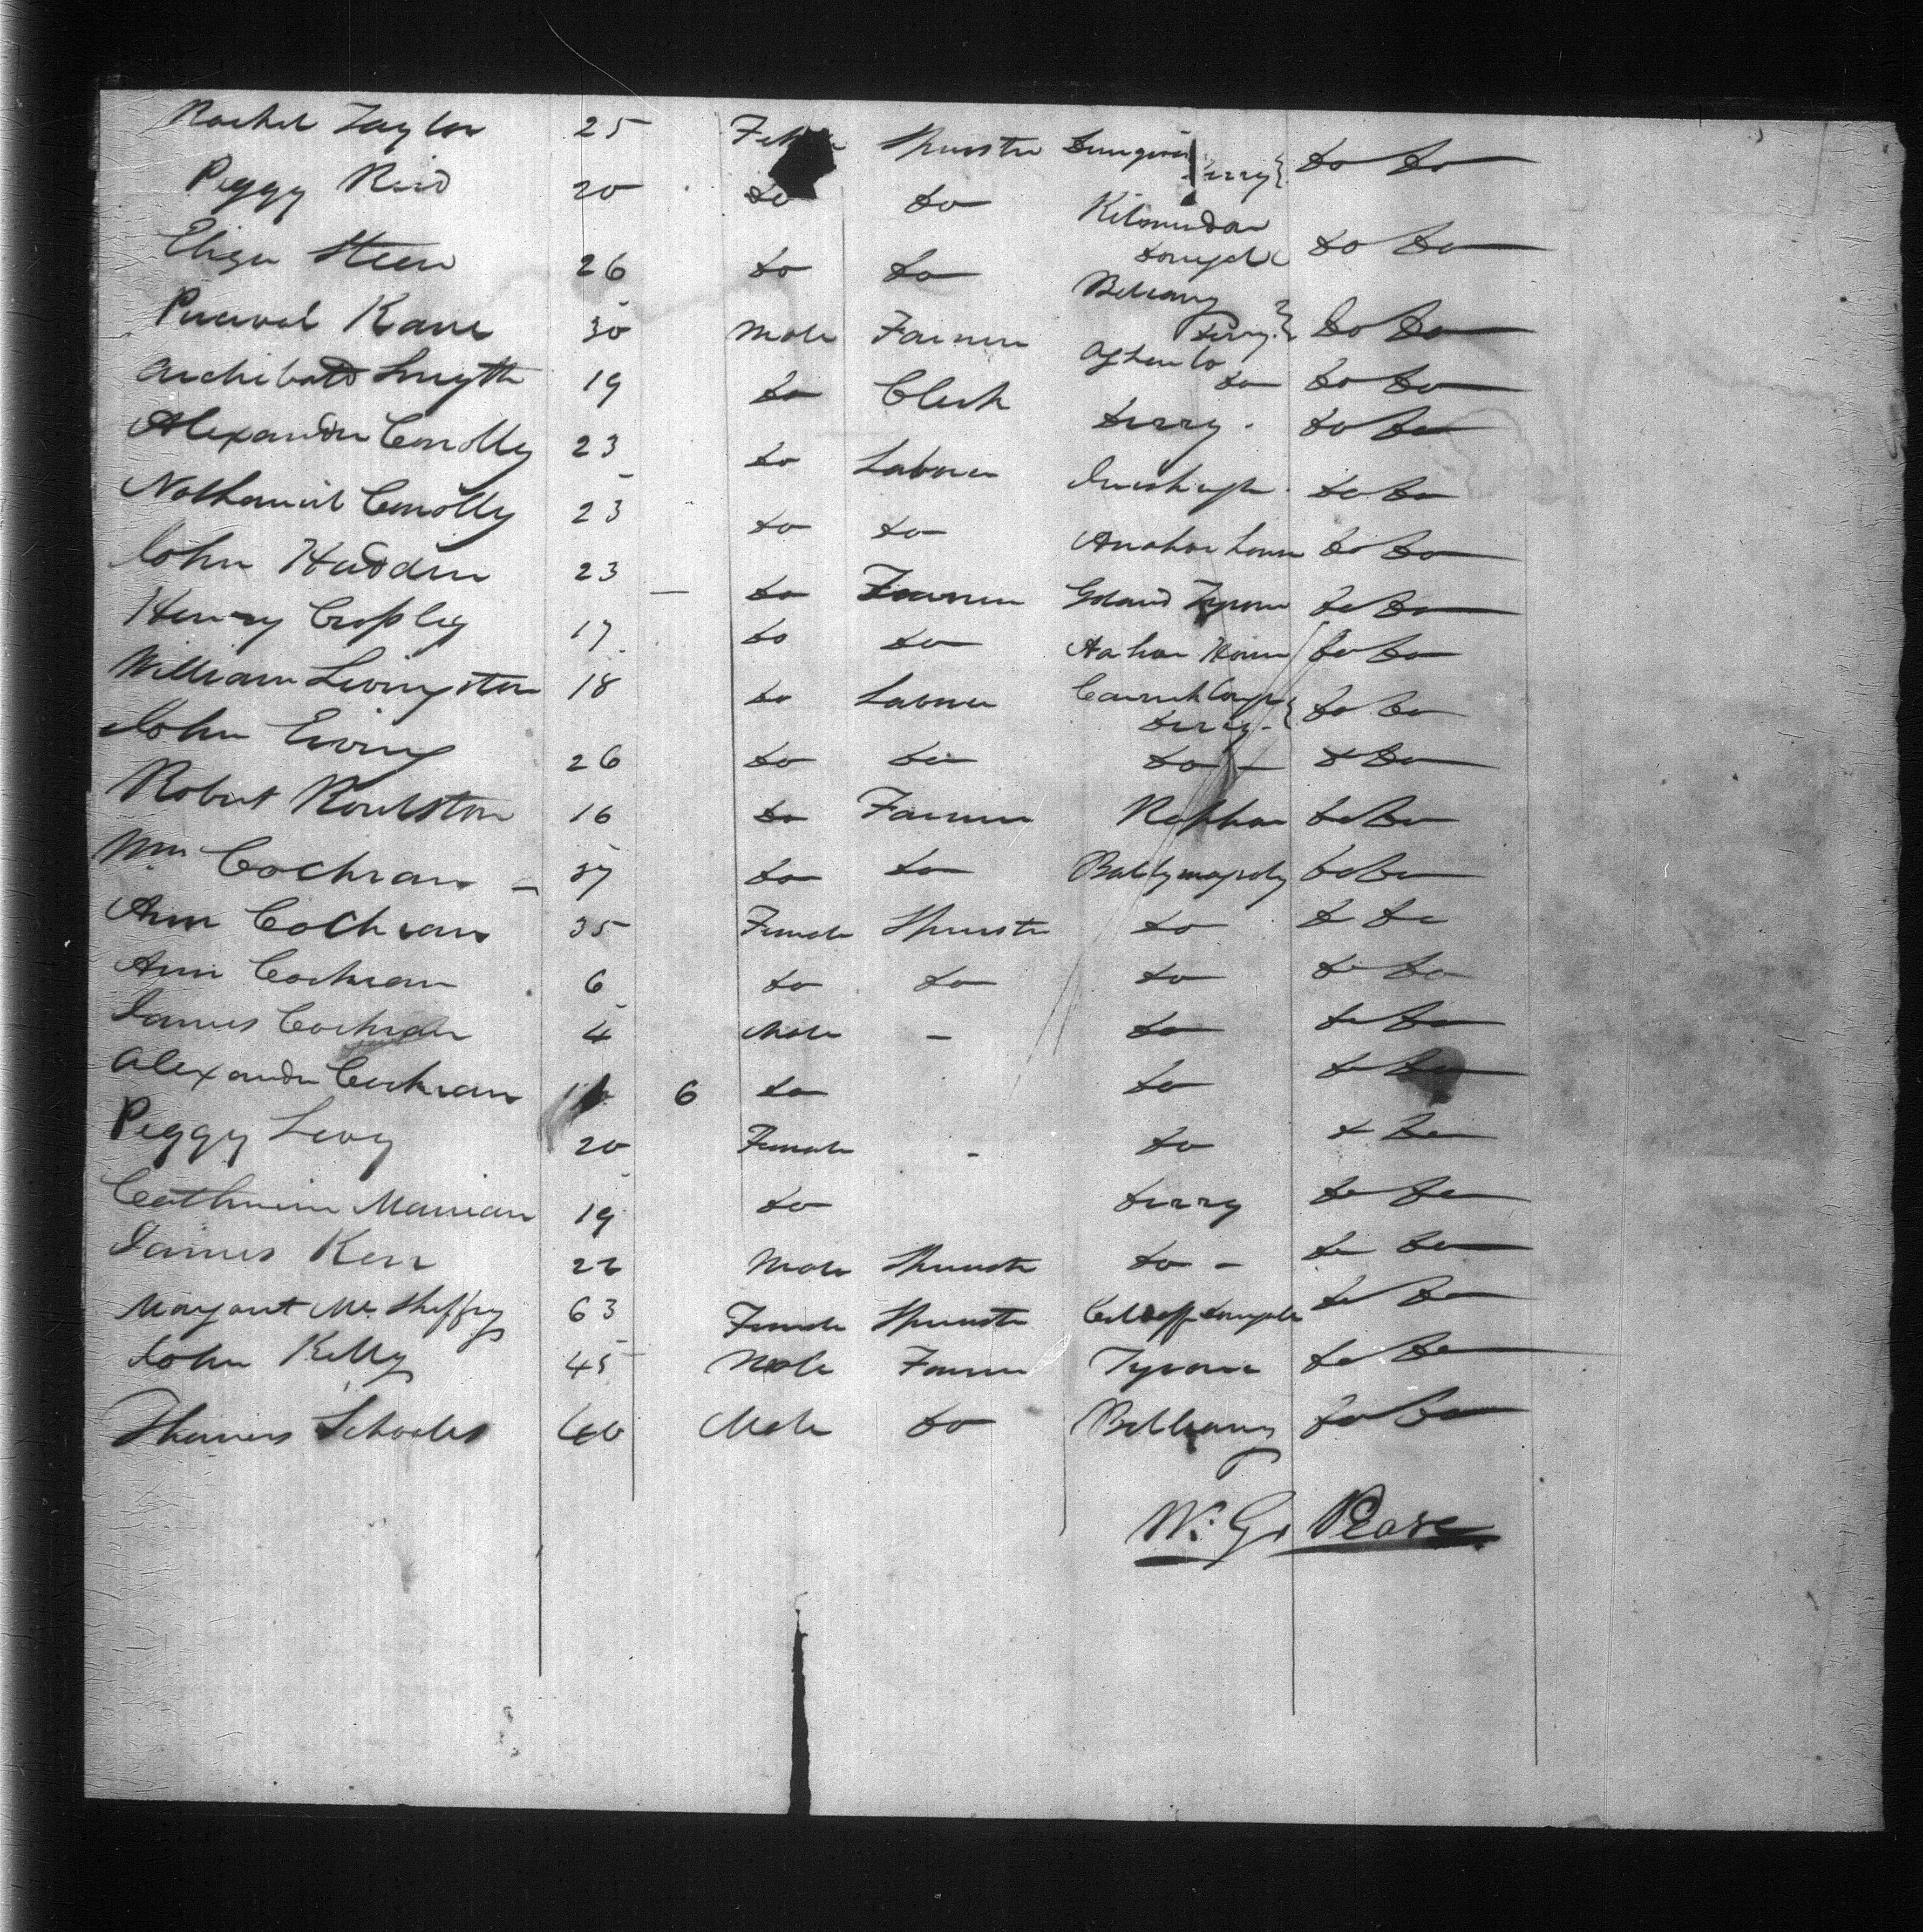 Rachel Taylor 25 Female Spinster Dungiven Derry do do
Peggy Reid 20 do do Donegal do do
Eliza Steen 26 do do Bellarny Derry do do
Percival Kane 30 Male Farmer Aghanlo do do do
Archibald Smyth 19 do Clerk Derry do do
Alexander Conolly 23 do Laborer do do
Nathaniel Conolly 23 do do do do
John Hadden 23 do Farmer Tyrone do do
Henry 17 do do do do
William Livingston 18 do Laborer Derry do do
John Ewing 26 do do do do do
Robert Roulston 16 do Farmer Raphoe do do
Wm Cochran 37 do do do do
Ann Cochran 35 Female Spinster do do do
Ann Cochran 6 do do do do do
James Cochran 4 Male - do do do
Alexander Cochran 6 do do do do
Peggy Levy 20 Female - do do do
Catherine 19 do Derry do do
James Kerr 22 Male Spinster do do do
Margaret Mc Sheffry 63 Female Spinster do do
John Kelly 45 Male Farmer Tyrone do do
Thomas Scholes Male do do do
W. G. Pease